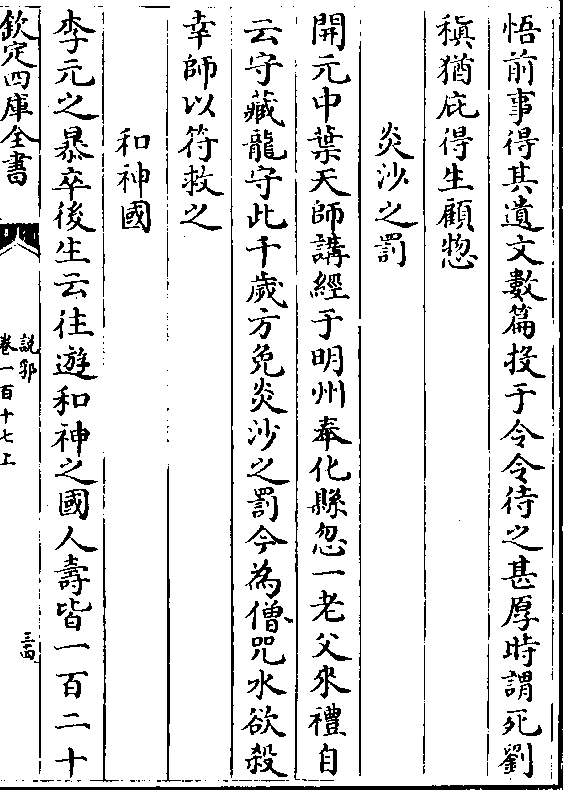 悟前事得其遺文數篇投于令令待之甚厚時謂死劉
稹猶庇得生顧惣
炎沙之罰
開元中葉天師講經于明州奉化縣忽一老父來禮自
云守藏龍守此千歲方免炎沙之罰今為僧咒水欲殺
幸師以符救之
和神國
李元之暴卒後生云往遊和神之國人壽皆一百二十
欽定四庫全書
說郛
卷一百十七上
三四